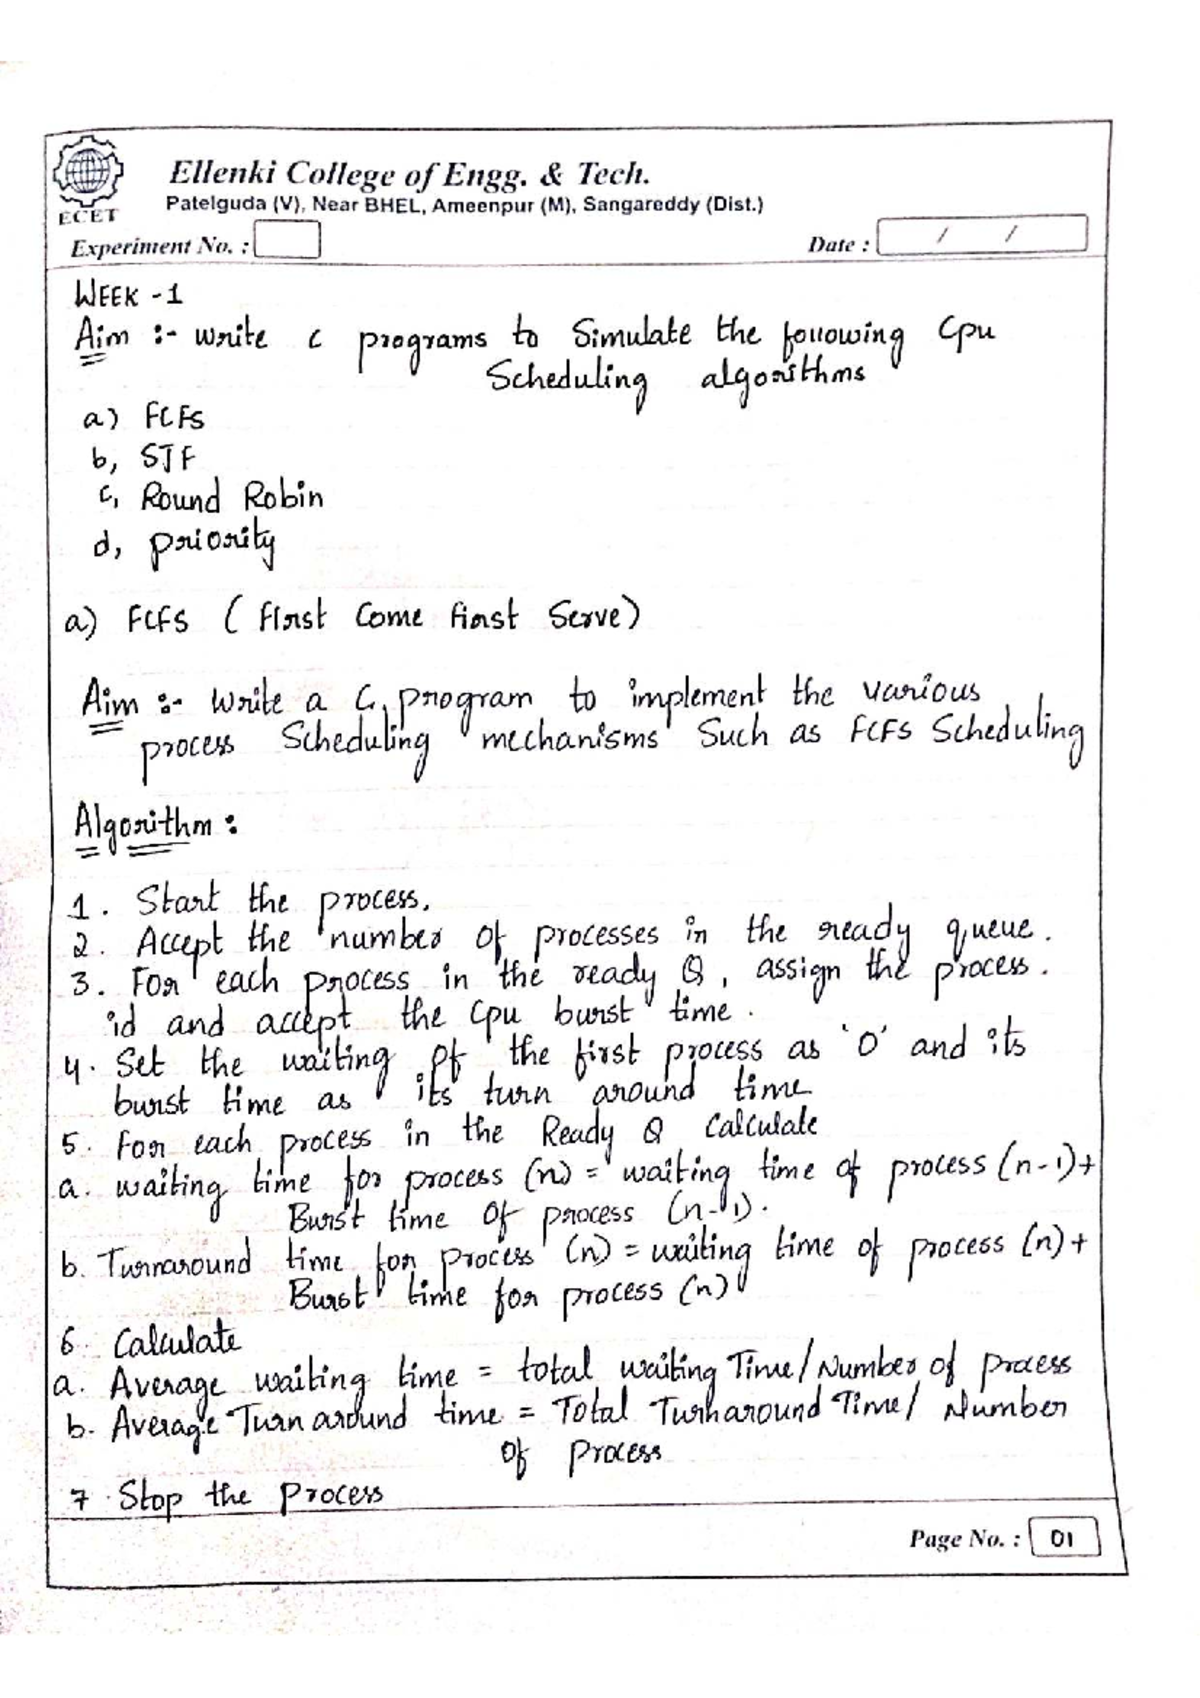 Ellenki College of Engg. & Tech.
Patelguda (V), Near BHEL, Ameenpur (M), Sangareddy (Dist.)
ECET
Experiment No. :
Date : / /
WEEK -1
Aim :- write c programs to Simulate the following Cpu
Scheduling algorithms
a) FCFS
b, SJF
c, Round Robin
d, priority
a) FCFS ( First Come First Serve)
Aim :- Write a C program to implement the various
process Scheduling mechanisms Such as FCFS Scheduling
Algorithm :
1. Start the process.
2. Accept the number of processes in the ready queue.
3. For each process in the ready Q, assign the process.
id and accept the Cpu burst time.
4. Set the waiting of the first process as '0' and its
burst time as its turn around time
5. For each process in the Ready Q Calculate
a. waiting time for process (n) = waiting time of process (n-1)+
Burst time Of process (n-1).
b. Turnaround time for process (n) = waiting time of process (n) +
Burst time for process (n)
6. Calculate
a. Average waiting time = total waiting Time/Number of process
b. Average Turn around time = Total Turnaround Time/ Number
Of process
7. Stop the Process
Page No. : 01